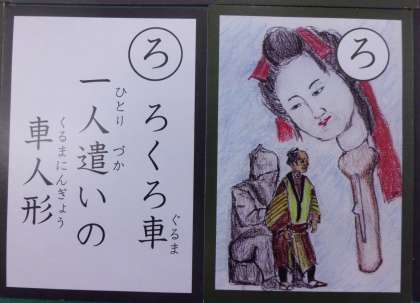 ろ
ろくろ車
ぐるま
一人遣いの
ひとり づか
車人形
くるまにんぎょう
ろ